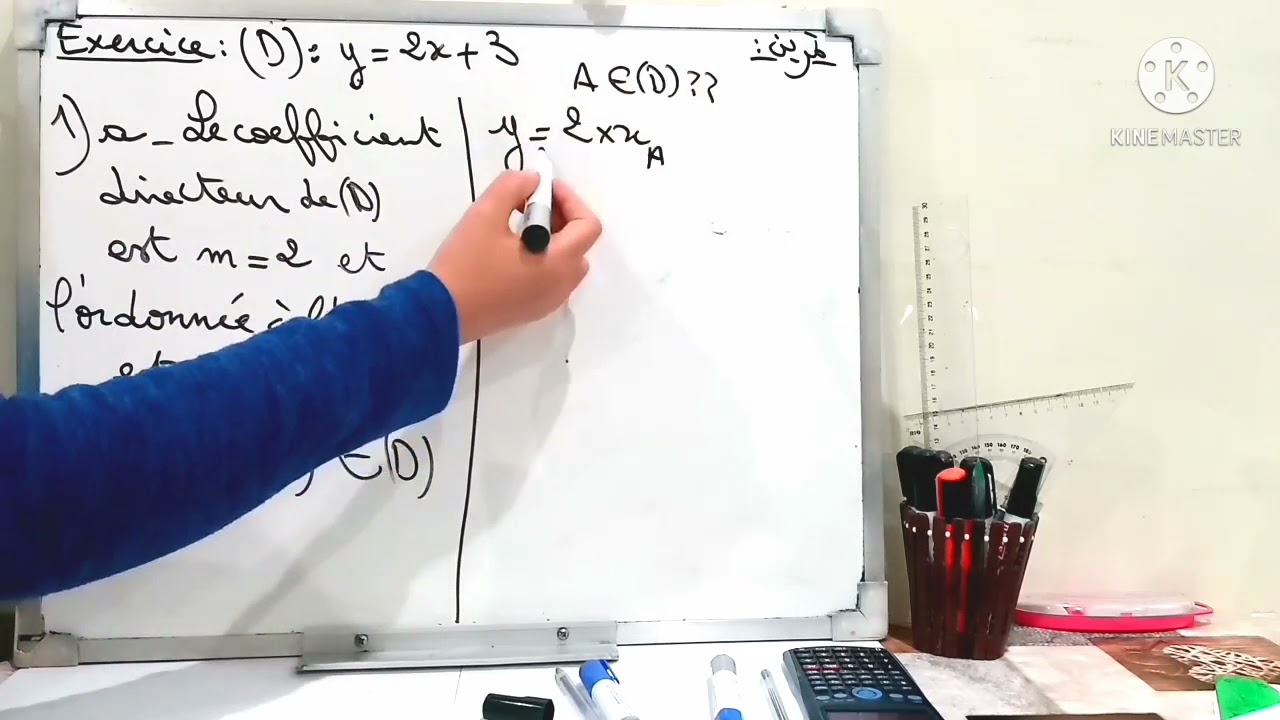 Exercice : (D) : y = 2x + 3
تمرين :
1) a - Le coefficient
directeur de (D)
est m = 2 et
l'ordonnée à
∈ (D)
A ∈ (D) ??
y = 2 × x_A
K
KINEMASTER